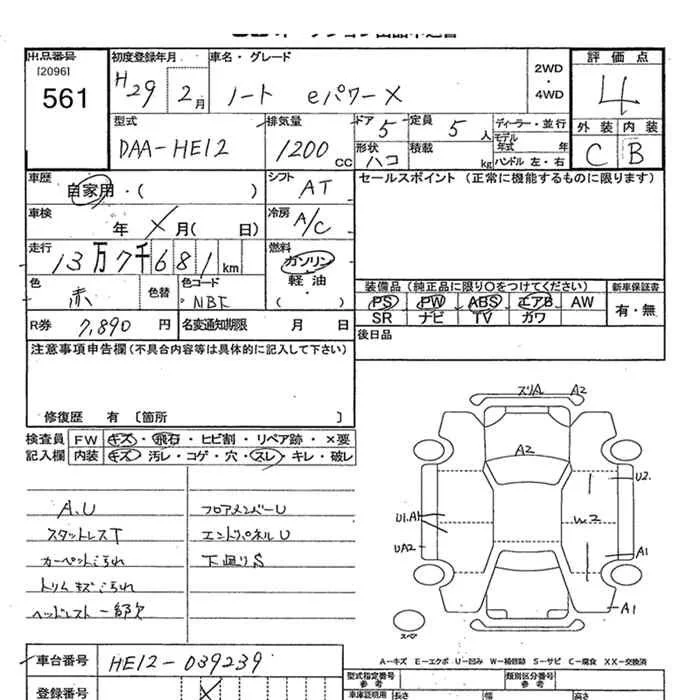 出品番号 [2096] 561
初度登録年月 H29 2月
車名・グレード ノート eパワーX
2WD・4WD
評価点 4
外装 C 内装 B
型式 DAA-HE12
排気量 1200cc
ドア 5
定員 5人
形状 ハコ
積載 kg
ディーラー・並行
モデル年式 年
ハンドル 左・右
車歴 自家用・( )
シフト AT
セールスポイント (正常に機能するものに限ります)
車検 年 X月( 日)
冷房 A/C
走行 13万7千681km
燃料 ガソリン 軽油 ( )
色 赤 色替
色コード NBF
装備品 (純正品に限り○をつけてください)
新車保証書
PS PW ABS エアB AW
SR ナビ TV カワ
有・無
R券 7,890円
名変通知期限 月 日
後日品
注意事項申告欄 (不具合内容等は具体的に記入して下さい)
修復歴 有 〔箇所 〕
検査員記入欄
FW キズ・飛石・ヒビ割・リペア跡・×要
内装 キズ 汚レ・コゲ・穴・スレ・キレ・破レ
A.U
スタットレスT
カーペット汚れ
トリム キズ 汚れ
ヘッドレスト一部欠
フロアメンバーU
エンドパネルU
下廻りS
スリA A2
A2
U2.
U1.A1
W2
UA2
A1
A1
スペア
A-キズ E-エクボ U-凹み W-補修跡 S-サビ C-腐食 XX-交換済
車台番号 HE12-039239
型式指定番号 参考
類別区分番号 参考
登録番号
車庫証明用 参考 長さ 幅 高さ